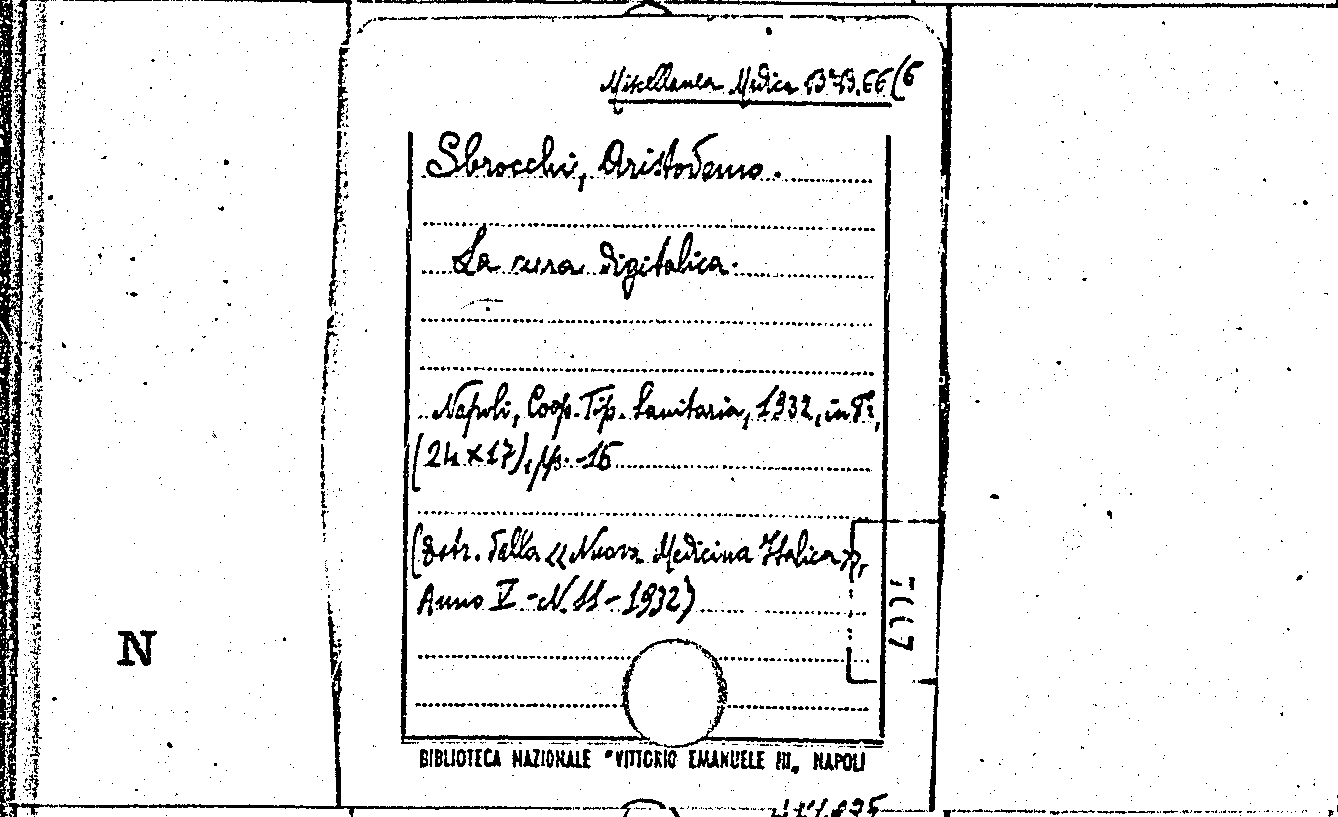 Miscellanea Medica B 79.66(6
Sbrocchi, Aristodemo.
La cura digitalica.
Napoli, Coop. Tip. Sanitaria, 1932, in 8º,
(24 x 17), pp. -16
(Estr. dalla «Nuova Medicina Italica»,
Anno V - N. 11 - 1932)
N
BIBLIOTECA NAZIONALE "VITTORIO EMANUELE III„ NAPOLI